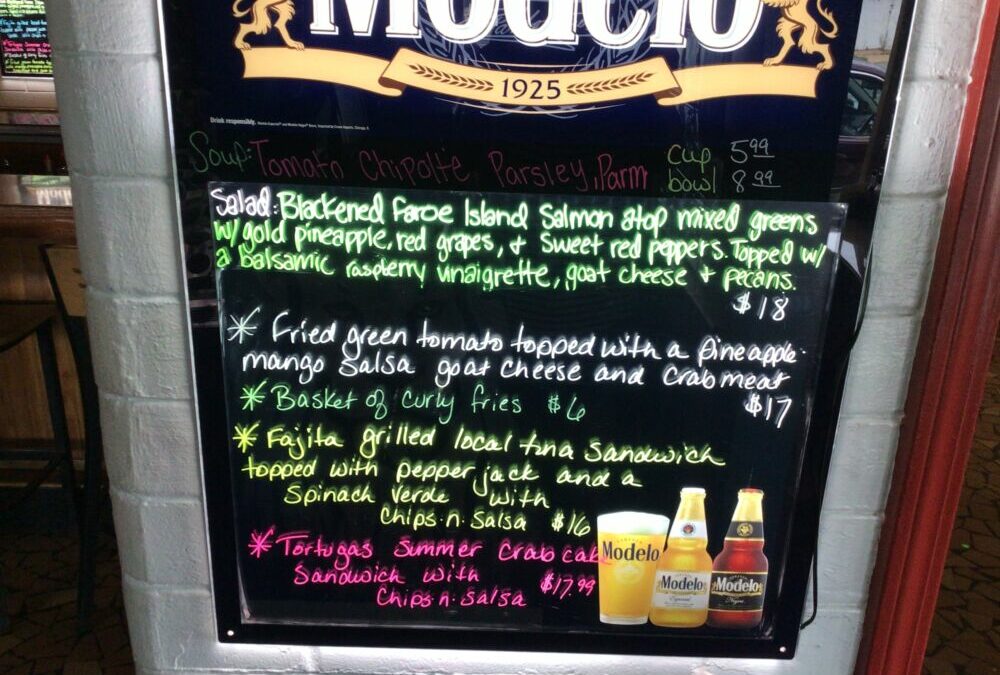 Modelo
1925
Drink responsibly.
Soup: Tomato Chipolte Parsley, Parm cup 5.99
bowl 8.99
Salad: Blackened Faroe Island Salmon atop mixed greens
w/ gold pineapple, red grapes, + Sweet red peppers. Topped w/
a balsamic raspberry vinaigrette, goat cheese + pecans.
$18
* Fried green tomato topped with a pineapple-
mango Salsa goat cheese and crab meat
$17
* Basket of curly fries $6
* Fajita grilled local tuna Sandwich
topped with pepper jack and a
Spinach Verde with
Chips n. Salsa $16
* Tortugas Summer Crab cake
Sandwich with $17.99
Chips n. Salsa
Modelo
Modelo
Especial
Modelo
Negra